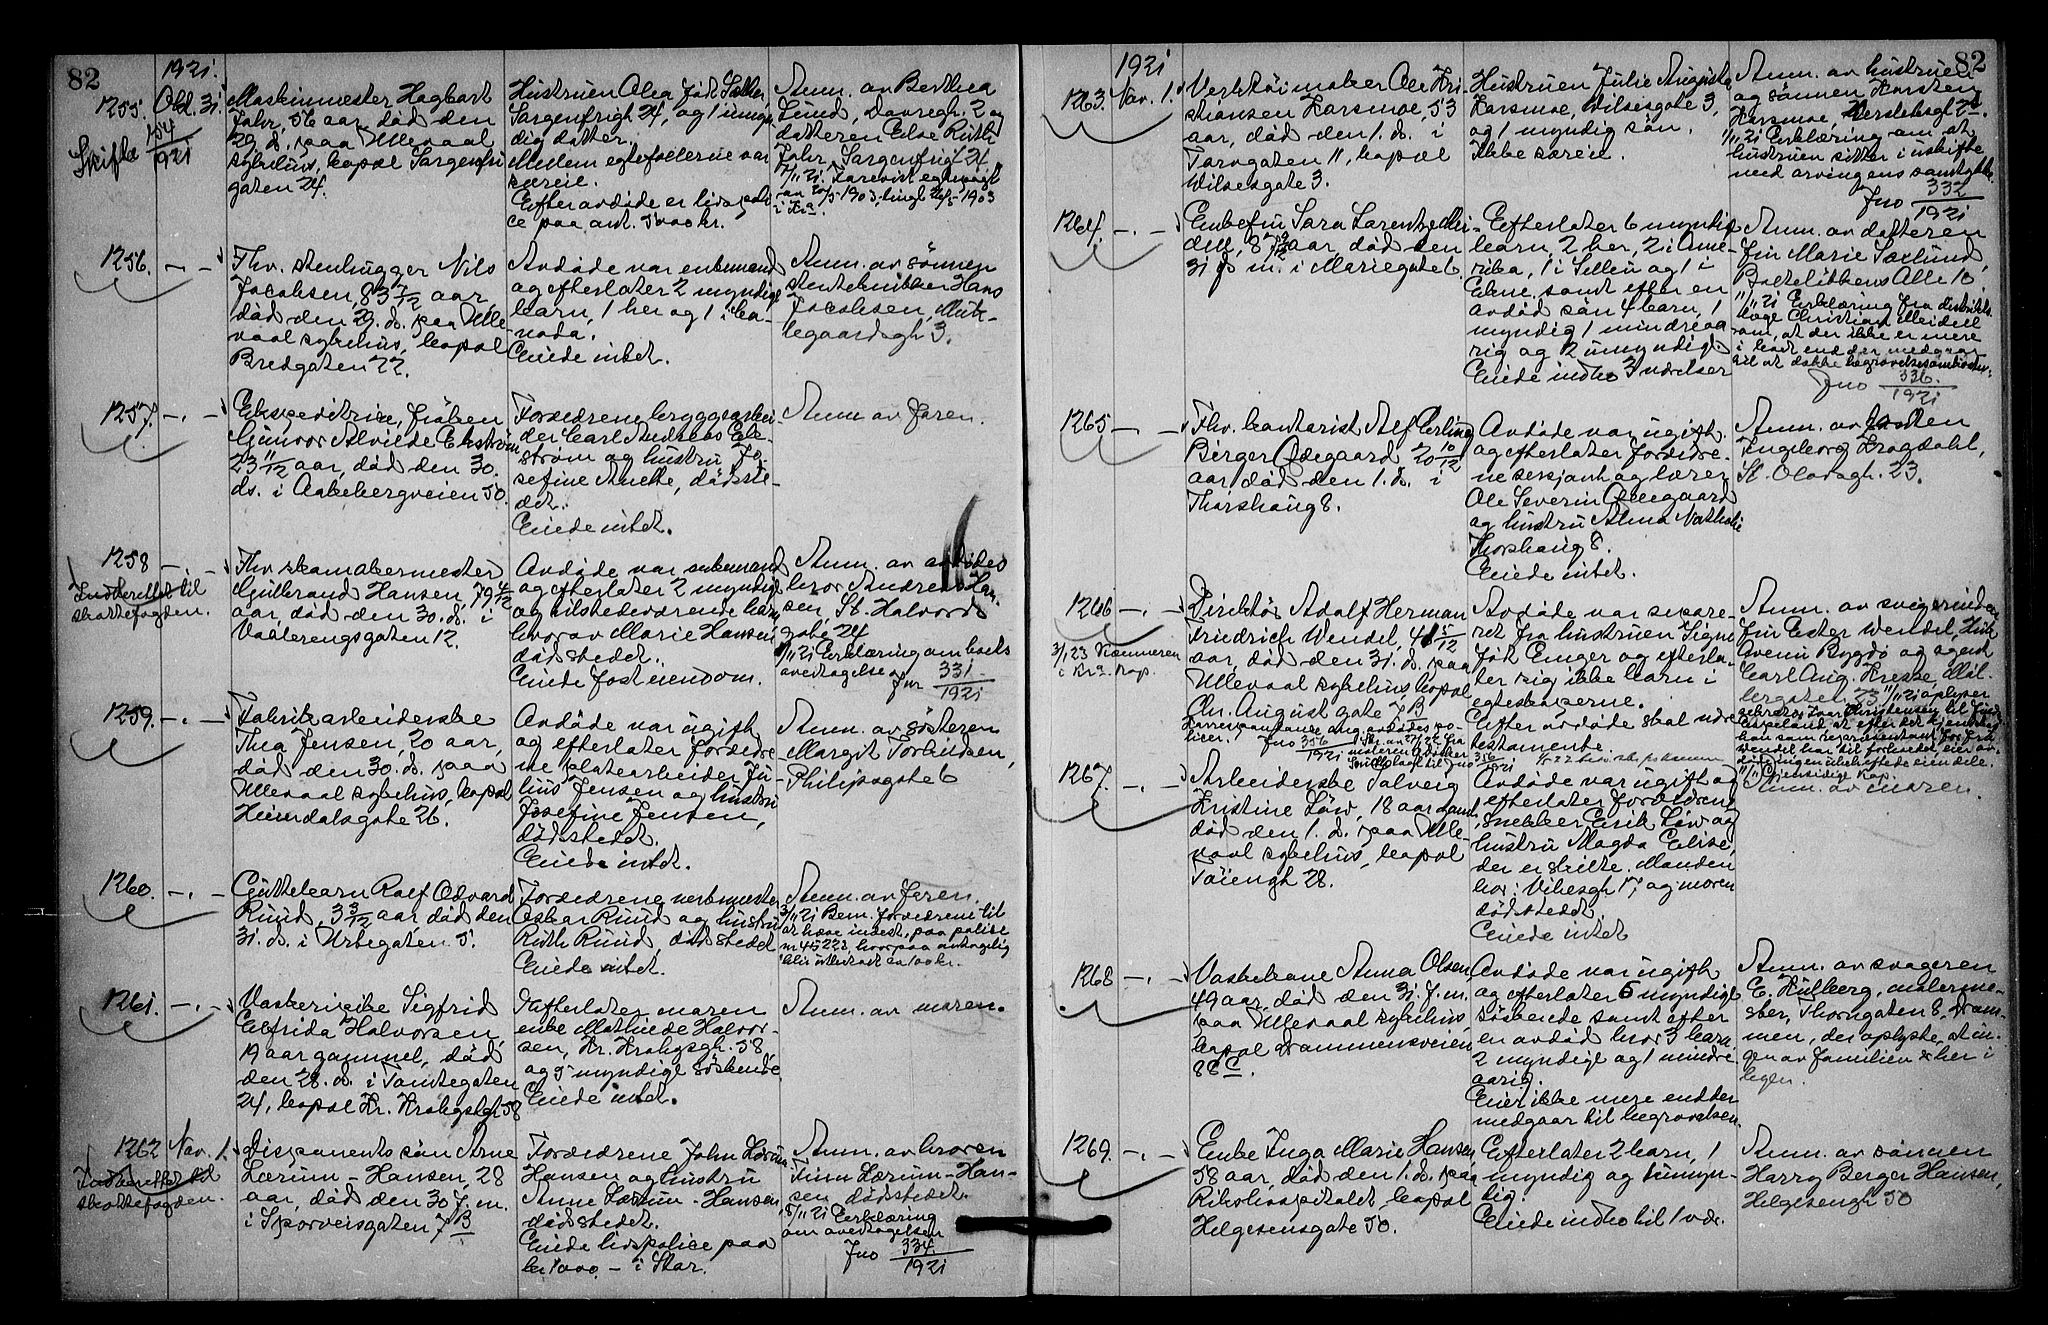 82
1921.
1255. Okt. 31.
Skifte 154/1921
Maskinmester Hagbart
Jahr, 56 aar, død den
29. d. paa Ullevaal
sykehus, bopæl Sorgenfri
gaten 24.
Hustruen Olea født
Sorgenfrigt 24, og 1 umyn
dig datter.
Mellem egtefællerne var
særeie.
Efter avdøde er livspoli
ce paa ant. 5000 kr.
Anm. av Berthea
Lund, 2 og
datteren Else Ruth
Jahr, Sorgenfrigt 24
1256. -"-
Fhv. stenhugger Nils
Jacobsen, 83 7/12 aar,
død den 29. d. paa Ulle-
vaal sykehus, bopæl
Bredgaten 22.
Avdøde var enkemand
og efterlater 2 myndige
barn, 1 her og 1 i Ca-
nada.
Eiede intet.
Anm. av sønnen
Hans
Jacobsen, Munk-
legaardsgt. 3.
1257. -"-
Ekspeditrice, frøken
Gunvor Alvilde Ekstrøm
23 11/12 aar, død den 30.
ds. i Aakebergveien 50.
Forældrene bryggearbei
der Carl Andreas Ek-
strøm og hustru Jo-
sefine Anette, dødste-
det.
Eiede intet.
Anm. av faren.
1258 -"-
Indberettet til
skattefogden.
Fhv. skomakermester
Gulbrand Hansen, 79 4/12
aar, død den 30. d. i
Vaalerengsgaten 12.
Avdøde var enkemand
og efterlater 2 myndige
og tilstedeværende barn
hvorav Marie Hansen,
dødstedet.
Eiede fast eiendom.
Anm. av avdødes
bror Andreas Han-
sen, St. Halvards
gate 24
Erklæring om boets
overtagelse
Jnr 331/1921
1259. -"-
Fabrikarbeiderske
Thea Jensen, 20 aar,
død den 30. d. paa
Ullevaal sykehus, bopæl
Heimdalsgate 26.
Avdøde var ugift
og efterlater foreldre
ne platearbeider Ju
lius Jensen og hustru
Josefine Jensen,
dødstedet.
Eiede intet.
Anm. av søsteren
Margit Torbudsen,
Philipsgate 6
1260. -"-
Guttebarn Rolf Edvard
Ruud, 3 3/12 aar død den
31. d. i Urtegaten 5.
Forældrene verkmester
Oskar Ruud og hustru
Ruth Ruud dødstedet
Eiede intet.
Anm. av faren.
3/11 21 Bem. forældrene til
at hæve indest. paa polise
nr 45223, hvorpaa antagelig
blir utbetalt ca 100 kr.
1261. -"-
Vaskeripike Sigfrid
Elfrida Halvorsen,
19 aar gammel, død
den 28. d. i Tomtegaten
24, bopæl Kr. Krohgsgt 58
Efterlater moren
enke Mathilde Halvor-
sen, Kr. Krohgsgt. 58
og 5 myndige søskende
Eiede intet.
Anm. av moren.
1262 Nov. 1.
Indberettet til
skattefogden.
Disponents søn Arne
Lærum-Hansen, 28
aar, død den 30. f. m.
i Sporveisgaten 7 B
Forældrene John Lærum
Hansen og hustru
Anne Lærum-Hansen,
dødstedet.
Eiede livspolice paa
kr 1000. - i Star.
Anm. av broren
Finn Lærum-Han-
sen, dødstedet.
5/11 21 Erklæring
om overtagelsen
Jno 334/1921
82
1921
1263. Nov. 1.
Verktøimaker Ole Kri
stiansen Korsmoe, 53
aar, død den 1. d. i
Torvgaten 11, bopæl
Wilsesgate 3.
Hustruen Julie Auguste
Korsmoe, Wilsesgate 3,
og 1 myndig søn.
Ikke særeie.
Anm. av hustruen
og sønnen Karsten
Korsmoe,
Erklæring om at
hustruen sitter i uskifte
med arvingens samtykke.
Jno 332/1921
1264. -"-
Enkefru Sara Lorentze Mei-
dell, aar, død den
31 f. m. i Mariegate 6
Efterlater 6 myndige
barn, 2 her, 2 i Ame-
rika, 1 i og 1 i
samt efter en
avdød søn 4 barn, 1
myndig 1 mindreaa
rig og 2 umyndige
Eiede indbo 3 værelser
Anm. av datteren
fru Marie Soxlund,
Bolteløkkens Alle 10,
11/11 21 Erklæring fra distrikts
læge Christian Meidell
om, at der ikke er mere
i boet end der medgaar
til at dække begravelsesomkostn.
Jno 336./1921
1265 -"-
Fhv. kontorist Alf Erling
Birger Ødegaard 20 10/12
aar, død den 1. d. i
Thorshaug 8.
Avdøde var ugift
og efterlater foreldre-
ne sersjant og lærer
Ole Severin Ødegaard
og hustru Alma Nathalie
Thorshaug 8.
Eiede intet.
Anm. av tanten
Ingeborg Krogdahl,
St. Olavsgt. 23.
1266 -"-
3/1 23 Kæmneren
i Kra. Kap.
Direktør Adolf Herman
Friedrich Wendel, 41 5/12
aar, død den 31. d. paa
Ullevaal sykehus, bopæl
Chr. August gate 7 B
Avdøde var separe-
ret fra hustruen Signe
født Enger og efterla-
ter sig ikke barn i
egteskapene.
Efter avdøde skal være
testamente.
Anm. av svigerinden
fru Ester Wendel,
Avenu Bygdø og agent
Carl Aug. Kresse
23 11/11 21 oplyser
1267. -"-
Arbeiderske Solveig
Kristine Löw, 18 aar gaml
død den 1. d. paa Ulle-
vaal sykehus, bopæl
Tøiengt 28.
Avdøde var ugift og
efterlater forældrene
snekker Erik Löw og
hustru Magda Elise,
der er skilte. Manden
bor: Vibesgt 17, og moren
dødstedet
Eiede intet
Anm. av moren.
1268 -"-
Vaskekone Anna Olsen
49 aar, død den 31. f. m.
paa Ullevaal sykehus,
bopæl Drammensveien
88 C.
Avdøde var ugift
og efterlater 6 myndige
søskende samt efter
en avdød bror 3 barn
2 myndige og 1 mindre
aarig.
Eier ikke mere end der
medgaar til begravelsen.
Anm. av svogeren
E. Hulberg, malerme-
ster, Thorngaten 8, Dram-
men, der oplyste, at in-
gen av familien er her i
byen.
1269. -"-
Enke Inga Marie Hansen
58 aar, død den 1. d. paa
Rikshospitalet, bopæl
Helgesensgate 50.
Efterlater 2 barn, 1
myndig og 1 umyn-
dig.
Eiede indbo til 1 vær.
Anm. av sønnen
Harry Berger Hansen,
Helgesengt 50